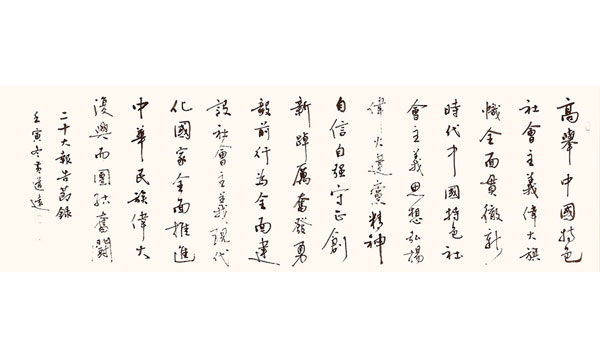 高舉中國特色
社會主義偉大旗
幟全面貫徹新
時代中國特色社
會主義思想弘揚
偉大建黨精神
自信自强守正創
新踔厲奮發勇
毅前行為全面建
設社會主義現代
化國家全面推進
中華民族偉大
復興而團結奮鬪
二十大報告節錄
壬寅冬